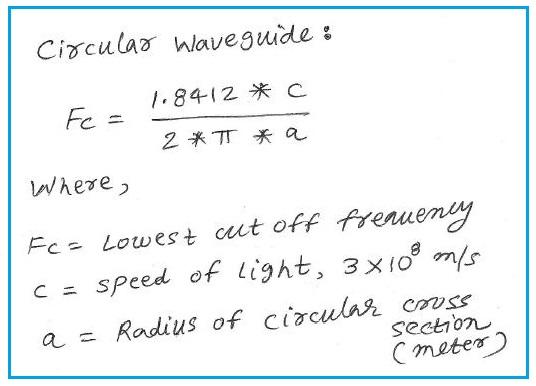 Circular Waveguide :
Fc = 1.8412 * c / 2 * π * a
Where,
Fc = Lowest cut off frequency
c = speed of light, 3×10⁸ m/s
a = Radius of circular cross
section
(meter)